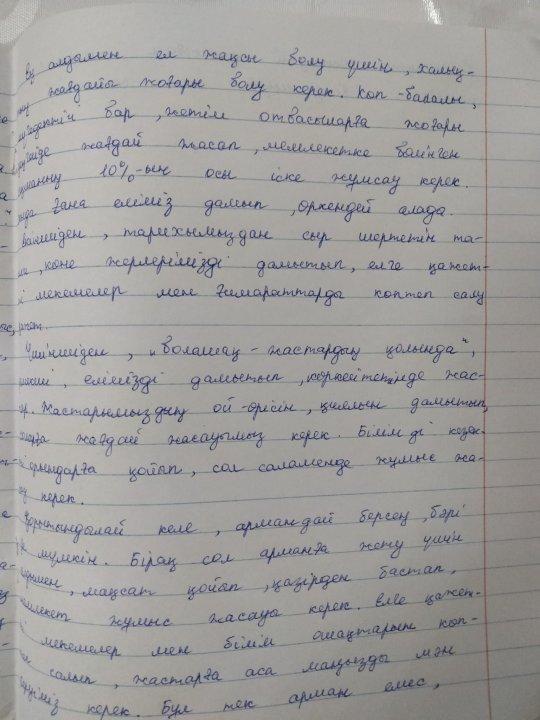 ең алдымен ел жақсы болу үшін, халық-
ың жағдайы жоғары болу керек. Көп-балалы,
мүгедектігі бар, жетім отбасыларға жоғары
жағдай жасап, мемлекетке бөлінген
10%-ын осы іске жұмсау керек.
ғана еліміз дамып, өркендей алады.
тарихымыздан сыр шертетін та-
көне жерлерімізді дамытып, елге қажет-
мекемелер мен ғимараттарды көптеп салу
Үшіншіден, „болашақ - жастардың қолында",
елімізді дамытып, көркейтетінде жас-
ар. Жастарымыздың ой-өрісін, қиялын дамытып,
жағдай жасауымыз керек. Білімді
орындарға қойып, сол саламенде жұмыс жа-
керек.
Қорытындылай келе, армандай берсең, бәрі
мүмкін. Бірақ сол арманға жету үшін
мақсат қойып, қазірден бастап,
жұмыс жасауы керек. Елге қажет-
мекемелер мен білім ошақтарын көп-
салып, жастарға аса маңызды мән
керек. Бұл тек арман емес,